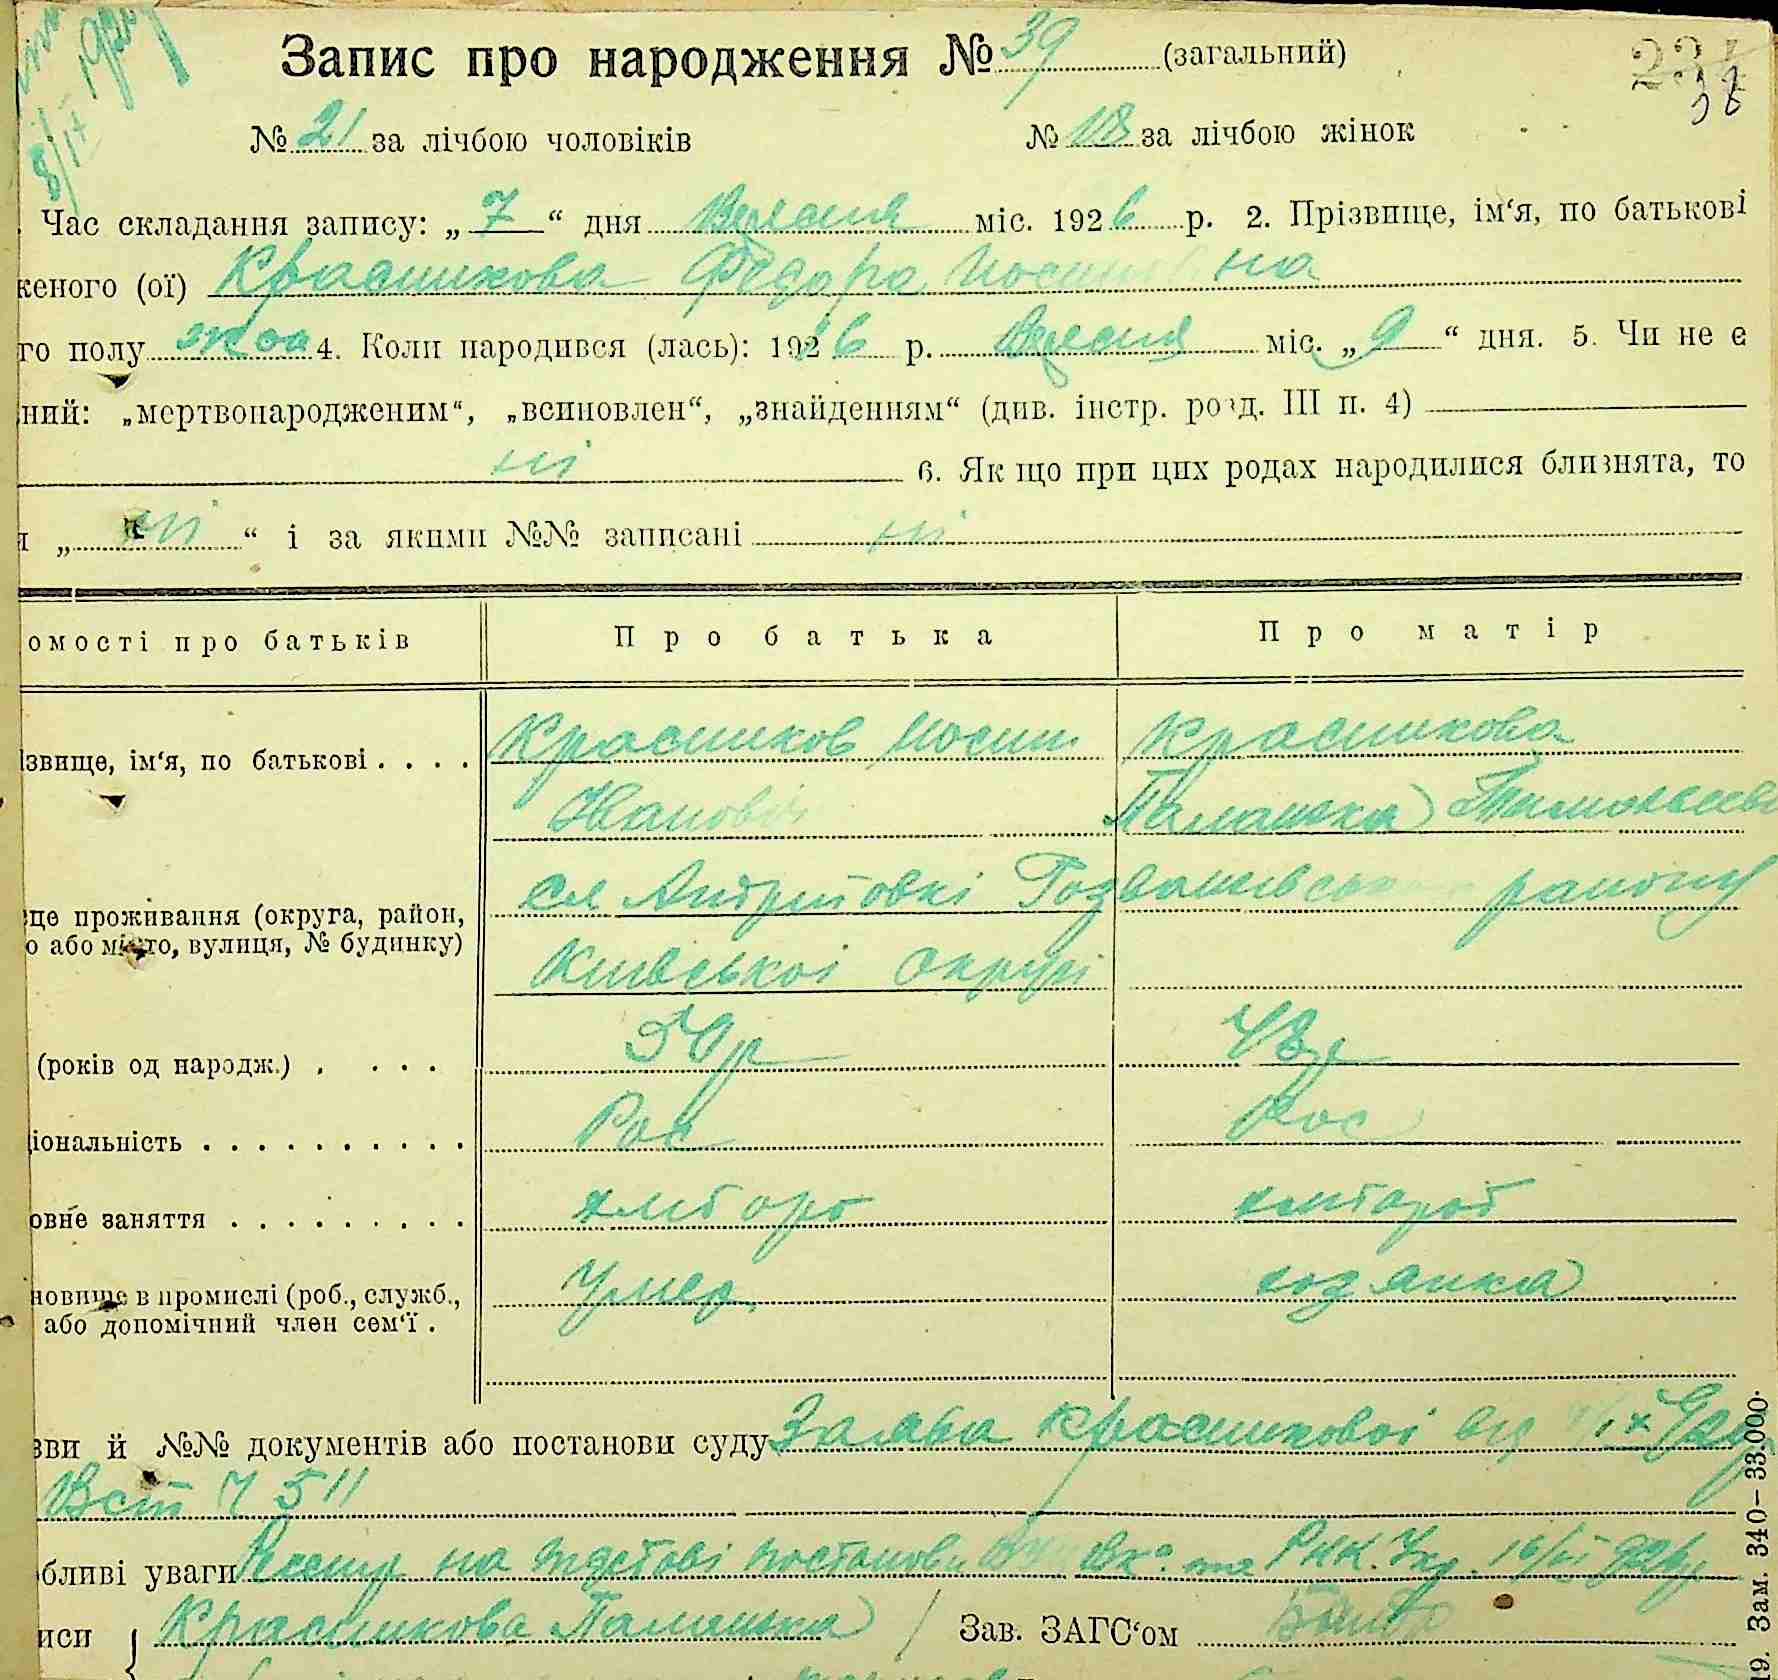 8/IX 192
Запис про народження № 39 (загальний)
234
38
№ 21 за лічбою чоловіків № 18 за лічбою жінок
Час складання запису: „ 7 “ дня Вересня міс. 1926 р. 2. Прізвище, ім‘я, по батькові
женого (ої) Красникова Федора на
го полу жоп 4. Коли народився (лась): 1926 р. Вересня міс. „ 9 “ дня. 5. Чи не є
ний: „мертвонародженим“, „всиновлен“, „знайденням“ (див. інстр. розд. III п. 4)
ні 6. Як що при цих родах народилися близнята, то
„ ні “ і за якими №№ записані ні
омості про батьків Про батька Про матір
Красников Иосип Красникова
звище, ім‘я, по батькові . . . .
Иванович Палашка Тимофеев
сл Андріївкі району
це проживання (округа, район,
о або місто, вулиця, № будинку)
Київської округі
(років од народж.) . . . . 50р 48р
ціональність . . . . . . . . . . Рос Рос
овне заняття . . . . . . . . . хлібороб хлібороб
новище в промислі (роб., служб.,
або допомічний член сем‘ї . Умер. хозяика
зви й №№ документів або постанови суду Заява Красникової від
Вст Ч 511
бливі уваги на підстові постанови та РНК. Укр.
иси { Красникова Палашка Зав. ЗАГС‘ом
19. Зам. 340–33.000.